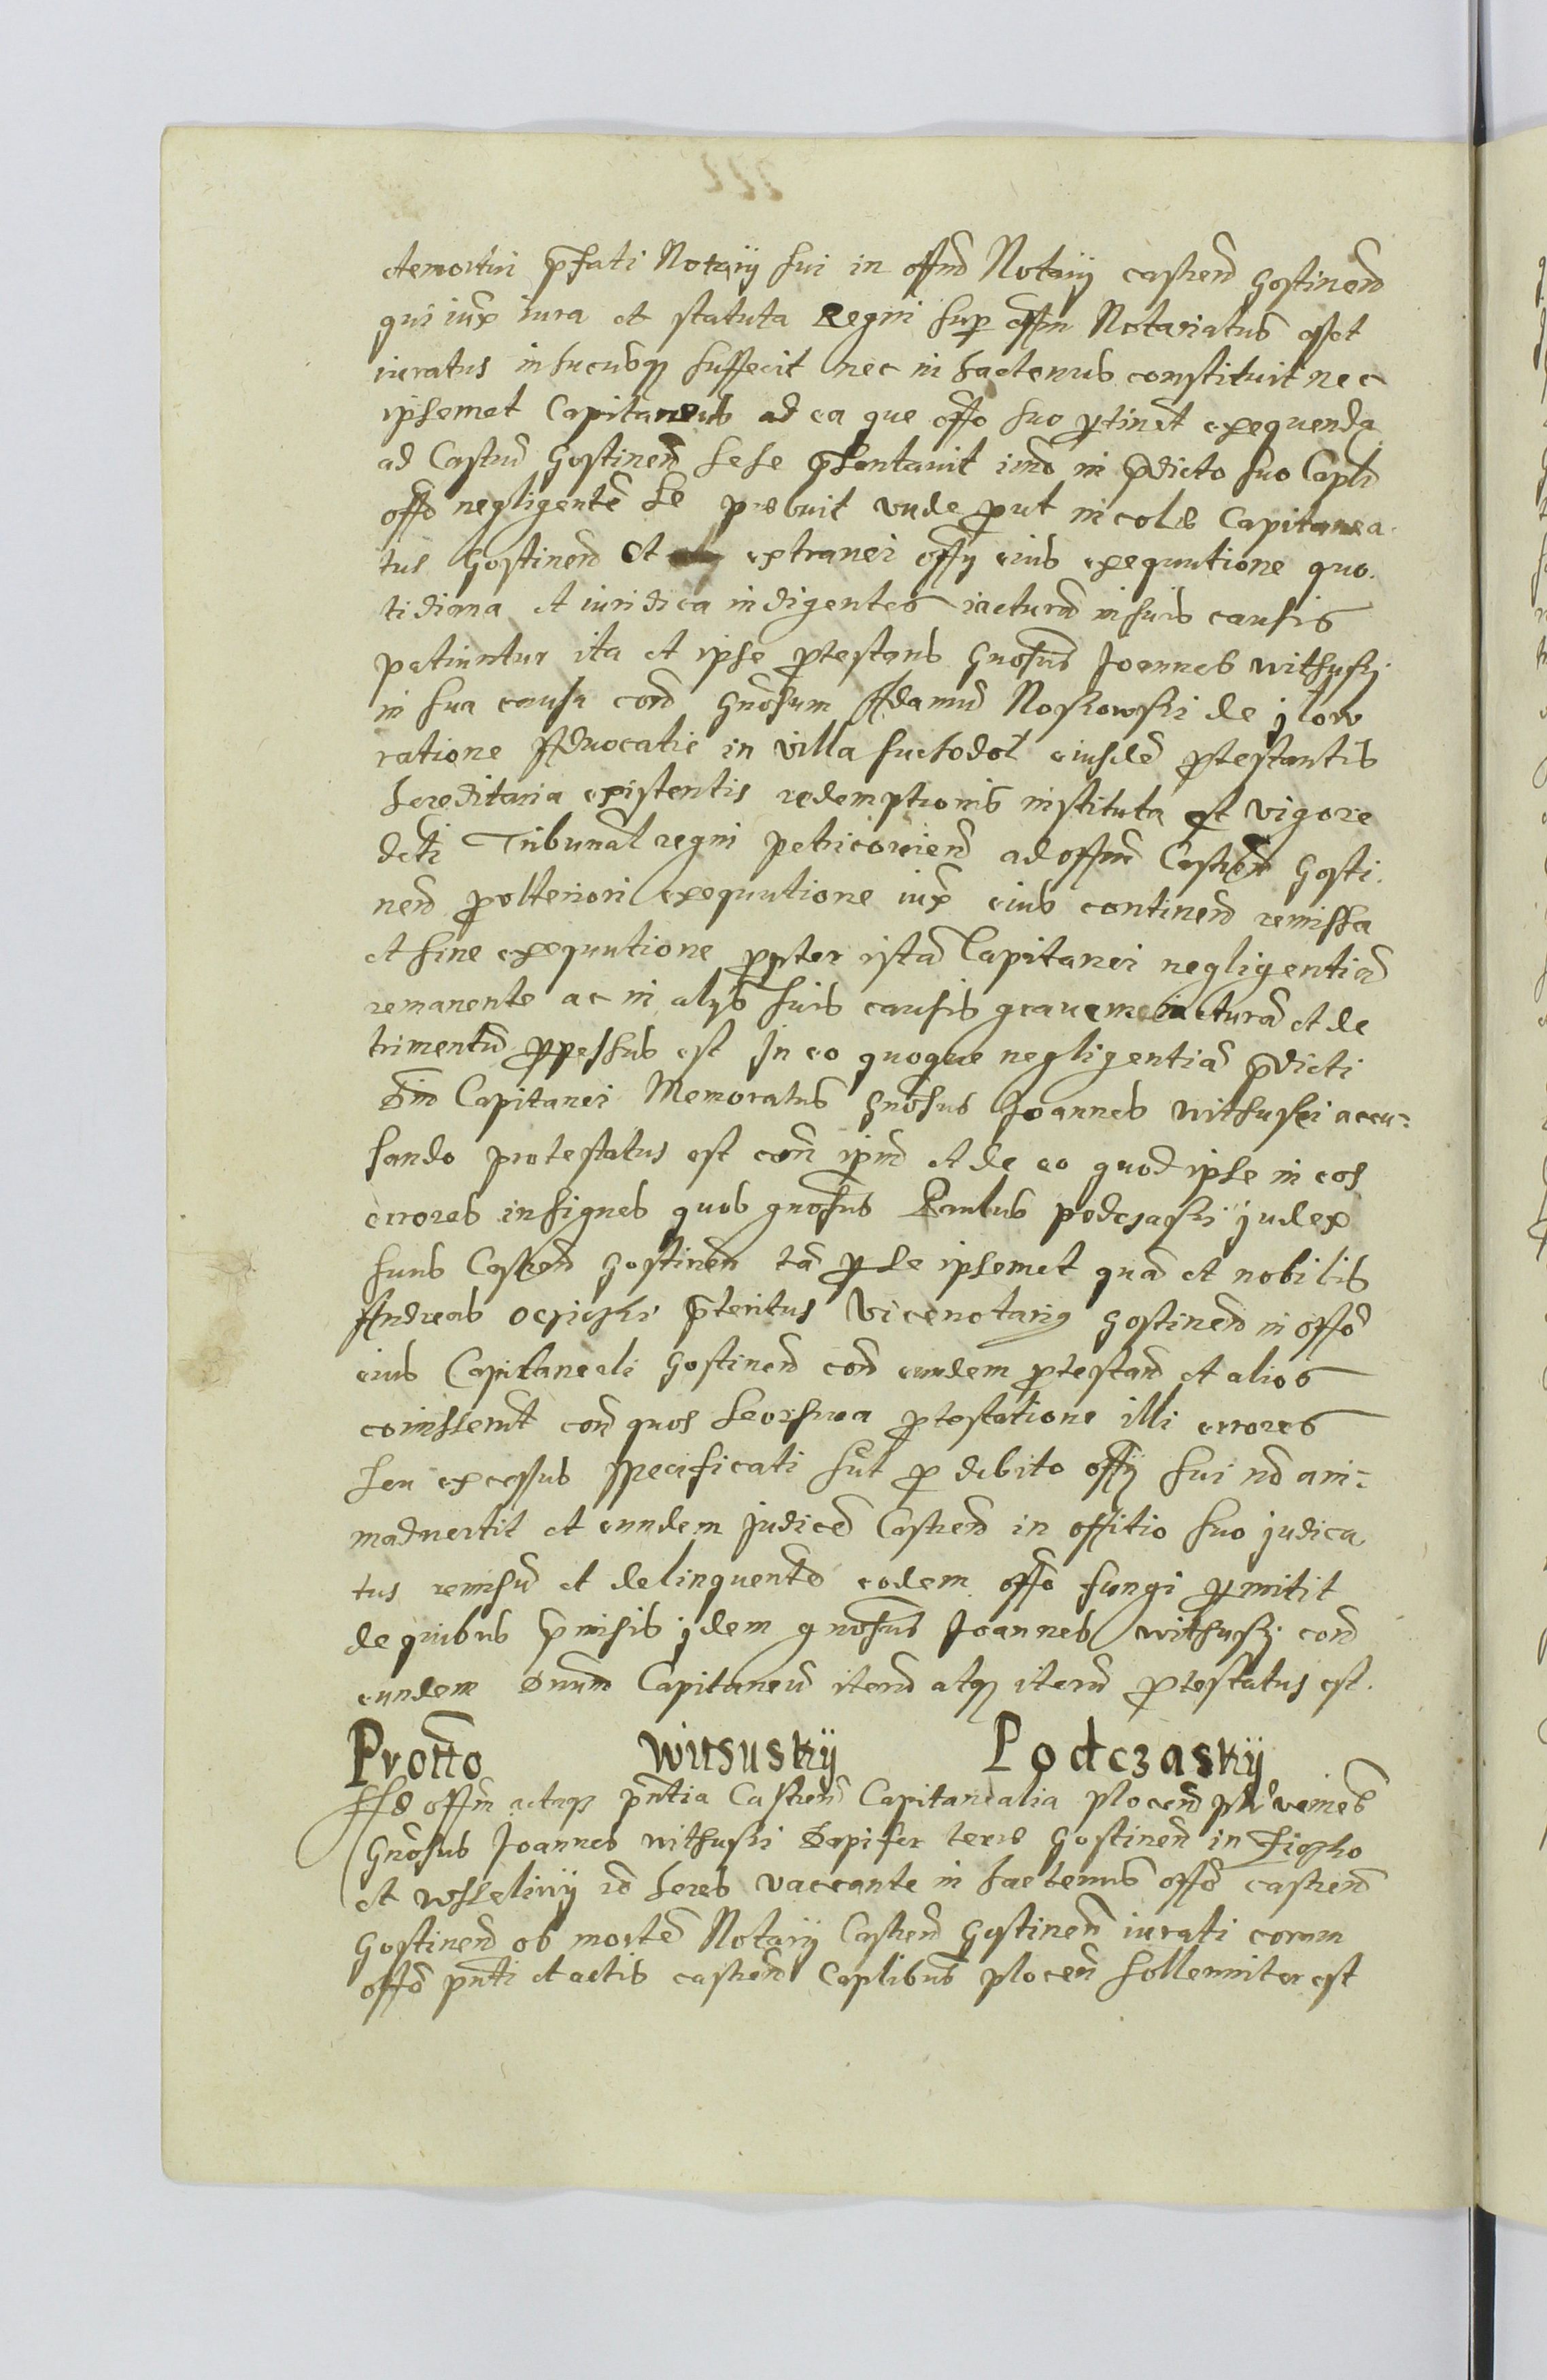 demortui p̃fati Notarÿ sui in offm̃ Notarÿ castreñ Gostineñ
qui iux̃ iura et statuta Regni sup̃ offm̃ Notariatus esset
iuratus in hucusq3 suffecit nec in hactenus constituit nec
ipsemet Capitaneus ad ea que offo suo ꝑtineñt exequenda
ad Castrũ Gostineñ sese p̃sentauit imo in p̃dicto suo Capłi
offõ negligentẽ se prebuit vnde ꝓut incole Capitanea-
tus Gostineñ et extranei offÿ eius exequutione quo-
tidiana et iuridica indigentes iacturã in suis causis
patiuntur ita et ipse ꝓtestans Gñosus Joannes withusky
in sua causa coñ Gñosum Adamũ Noskowski de jłow
ratione Aduocatie in villa suchodoł eiusdẽ ꝓtestantis
hereditaria existentis redemptionis instituta et vigore
dcti Tribunał regni petricouieñ ad offm̃ Castreñ Gosti-
neñ ꝓ vlteriori exequutione iux̃ eius contineñ remissa
et sine exequutione ꝓpter istã Capitanei negligentiã
remanente ac in alÿs suis causis graueme iacturã et de
trimentũ ꝑpessus est In eo quoque negligentiã p̃dicti
Dñi Capitanei Memoratus Gñosus Joannes withuski accu-
sando protestatus est coñ ipm̃ et de eo quod ipse in eos
errores insignes quos gnosus Paulus podczaski judex
suus Castreñ Gostineñ tã ꝑ se ipsemet quã et nobilis
Andreas p̃teritus Vicenotarius Gostineñ in offõ
eius Capitaneali Gostineñ coñ eundem ꝓtestañ et alios
comiserũt coñ quos seorsiua ꝓtestatione illi errores
seu excessus specificati sũt ꝓ debito offÿ sui nõ ani-
maduertit et eundem Judicẽ Castreñ in offitio suo judica
tus remisũ et delinquentẽ eodem offo fungi ꝑmitit
de quibus p̃misis jdem gnosus Joannes withusky coñ
eundem Dnum Capitaneũ iterũ atq3 iterũ ꝓtestatus est.
Protto withuskÿ Podczaskÿ
Ad offm̃ actaq3 pñtia Castreñ Capitanealia Ploceñ ꝑsõr venies
Gñosus Joannes withuski Dapifer terre Gostineñ in
et wsseliwÿ heres vaccante in hactenus offõ castreñ
Gostineñ ob mortẽ Notarÿ Castreñ Gostineñ iurati coram
offõ pñti et actis castreñ Caplibus ploceñ sollenniter est